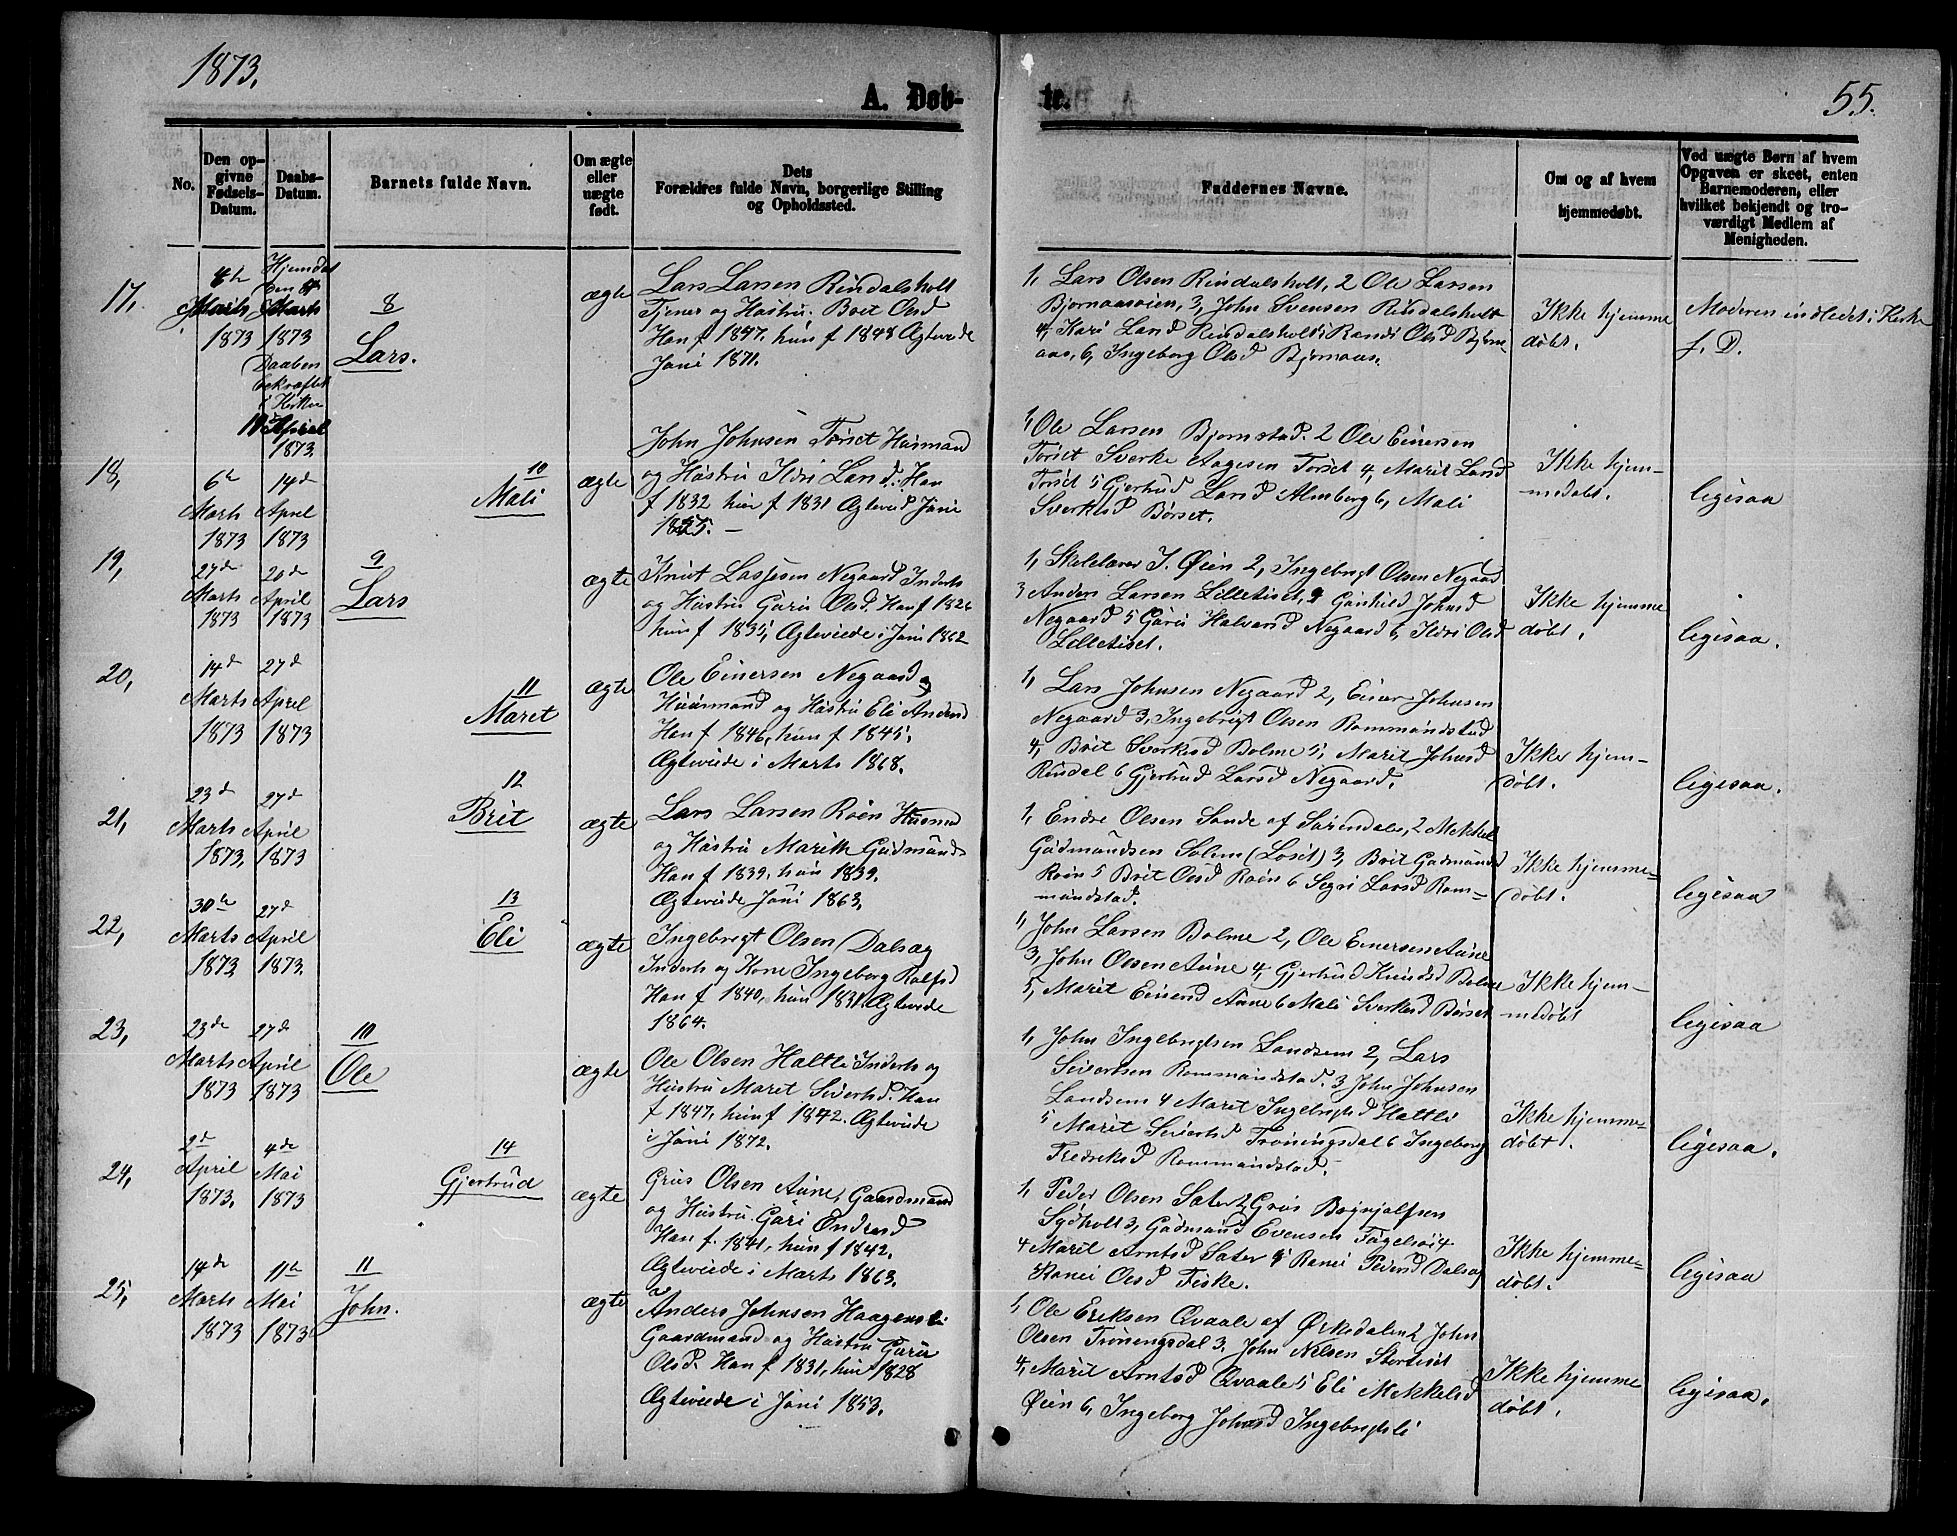 1873.
A. Døb-
te.
55.
No.
Den op-
givne
Fødsels-
Datum.
Daabs-
Datum.
Barnets fulde Navn.
Om ægte
eller
uægte
født.
Dets
Forældres fulde Navn, borgerlige Stilling
og Opholdssted.
Faddernes Navne.
Om og af hvem
hjemmedøbt.
Ved uægte Børn af hvem
Opgaven er skeet, enten
Barnemoderen, eller
hvilket bekjendt og tro-
værdigt Medlem af
Menigheden.
17,
Marts
1873
Marts
1873
Daaben
bekræftet
i Kirken
April
1873.
8
Lars.
ægte
Lars Larsen Rindalsholt
Tjener og Hustru. Brit Olsd
Han f 1847, hun f 1848 Ægteviede
Juni 1871.
1, Lars Olsen Rindalsholt, 2 Ole Larsen
Bjørnaasøien, 3, John Svensen Rindalsholt
4, Kari Larsd Rindalsholt Randi Olsd Bjørn-
aas, 6, Ingeborg Olsd Bjørnaas.
Ikke hjemme
døbt.
Moderen indledet i Kirke
f. D.
18,
6te
Marts
1873
14de
April
1873
10
Mali
ægte
John Johnsen Torset Husmand
og Hustru Ildri Larsd. Han
f 1832 hun f 1831 Ægteviede Juni
1, Ole Larsen Bjørnstad. 2 Ole Einersen
Torset Sverke Aagesen Torset 4, Marit Larsd
Torset 5 Gjertrud Larsd Almberg 6, Mali
Sverkesd Børset.
Ikke hjem-
medøbt.
ligesaa
19,
27de
Marts
1873
20de
April
1873
9
Lars
ægte
Knut Lassesen Negaard Inderst
og Hustru Guru Olsd. Han f 1826
hun f 1835, Ægteviede i Juni 1862
1, Skolelærer J. Øien 2, Ingebrigt Olsen Negaard
3 Anders Larsen Lilletiset, 4 Gunhild Johnsd
Negaard 5 Guru Halvorsd Negaard 6, Ildri Olsd
Lilletiset.
Ikke hjemme
døbt.
ligesaa.
20,
14de
Marts
1873
27de
April
1873
11
Maret
ægte
Ole Einersen Negaard
Huusmand og Hustru Eli Andersd
Han f 1846, hun f 1845,
Ægteviede i Marts 1868.
1, Lars Johnsen Negaard 2, Einer Johnsen
Negaard 3, Ingebrigt Olsen Rommundstad
4, Brit Sverkesd Bolme 5, Marit Johnsd
Rindal 6 Gjertrud Larsd Negaard.
Ikke hjem-
døbt.
ligesaa.
21,
23de
Marts
1873.
27de
April
1873
12
Brit
ægte
Lars Larsen Roen Husmd
og Hustru Marith Gudmunds
Han f 1839, hun 1839.
Ægteviede Juni 1863.
1, Endre Olsen Sande af Surendalen, 2 Mekkel
Gudmundsen Solem (Loset) 3, Brit Gudmunds
Roen 5 Brit Olsd Roen 6 Segri Larsd Rom-
mundstad.
Ikke hjemme-
døbt.
ligesaa
22,
30te
Marts
1873.
27de
April
1873.
13
Eli
ægte
Ingebrigt Olsen Dalsæg
Inderst og Kone Ingeborg Rolfsd
Han f 1840, hun 1831 Ægteviede
1864.
1, John Larsen Bolme 2, Ole Einersen Aune
3, John Olsen Aune 4, Gjertrud Knudsd Bolme
5, Marit Einersd Aune 6 Mali Sverkesd Børset
Ikke hjem-
medøbt
ligesaa
23,
23de
Marts
1873
27de
April
1873
10
Ole
ægte
Ole Olsen Haltli Inderst og
Hustru Maret Sivertsd. Han
f 1847, hun f 1842. Ægteviede
i Juni 1872.
1, John Ingebrigtsen Landsem 2, Lars
Sivertsen Rommundstad. 3 John Johnsen
Landsem 4 Maret Ingebrigtsd Haltli
5 Marit Sivertsd Trøningsdal 6 Ingeborg
Fredriksd Rommundstad.
Ikke hjemme-
døbt.
ligesaa.
24,
2de
April
1873.
4de
Mai
1873
14
Gjertrud
ægte
Grus Olsen Aune, Gaardmand
og Hustru. Guri Endresd
Han f. 1841, hun f 1842.
Ægteviede i Marts 1863.
1, Peder Olsen Sæter 2 Grus
Sydholt 3, Gudmund Evensen Fuglsøi
4 Marit Arntsd Sæter 5 Ranei Pedersd Dalsæg
Ranei Olsd Fiske.
Ikke hjemme-
døbt.
ligesaa
25,
14de
Marts
1873
11te
Mai
1873
11
John.
ægte
Anders Johnsen Haagensli
Gaardmand og Hustru Guru
Olsd. Han f 1831, hun 1828
Ægteviede i Juni 1853.
1, Ole Eriksen Qvaale af Ørkedalen 2 John
Olsen Trøningsdal 3. John Nelsen Stortiset
4, Marit Arntsd Qvaale 5 Eli Mekkelsd
Øien 6, Ingeborg Johnsd Ingebrigtsli
Ikke hjemme
døbt.
ligesaa.